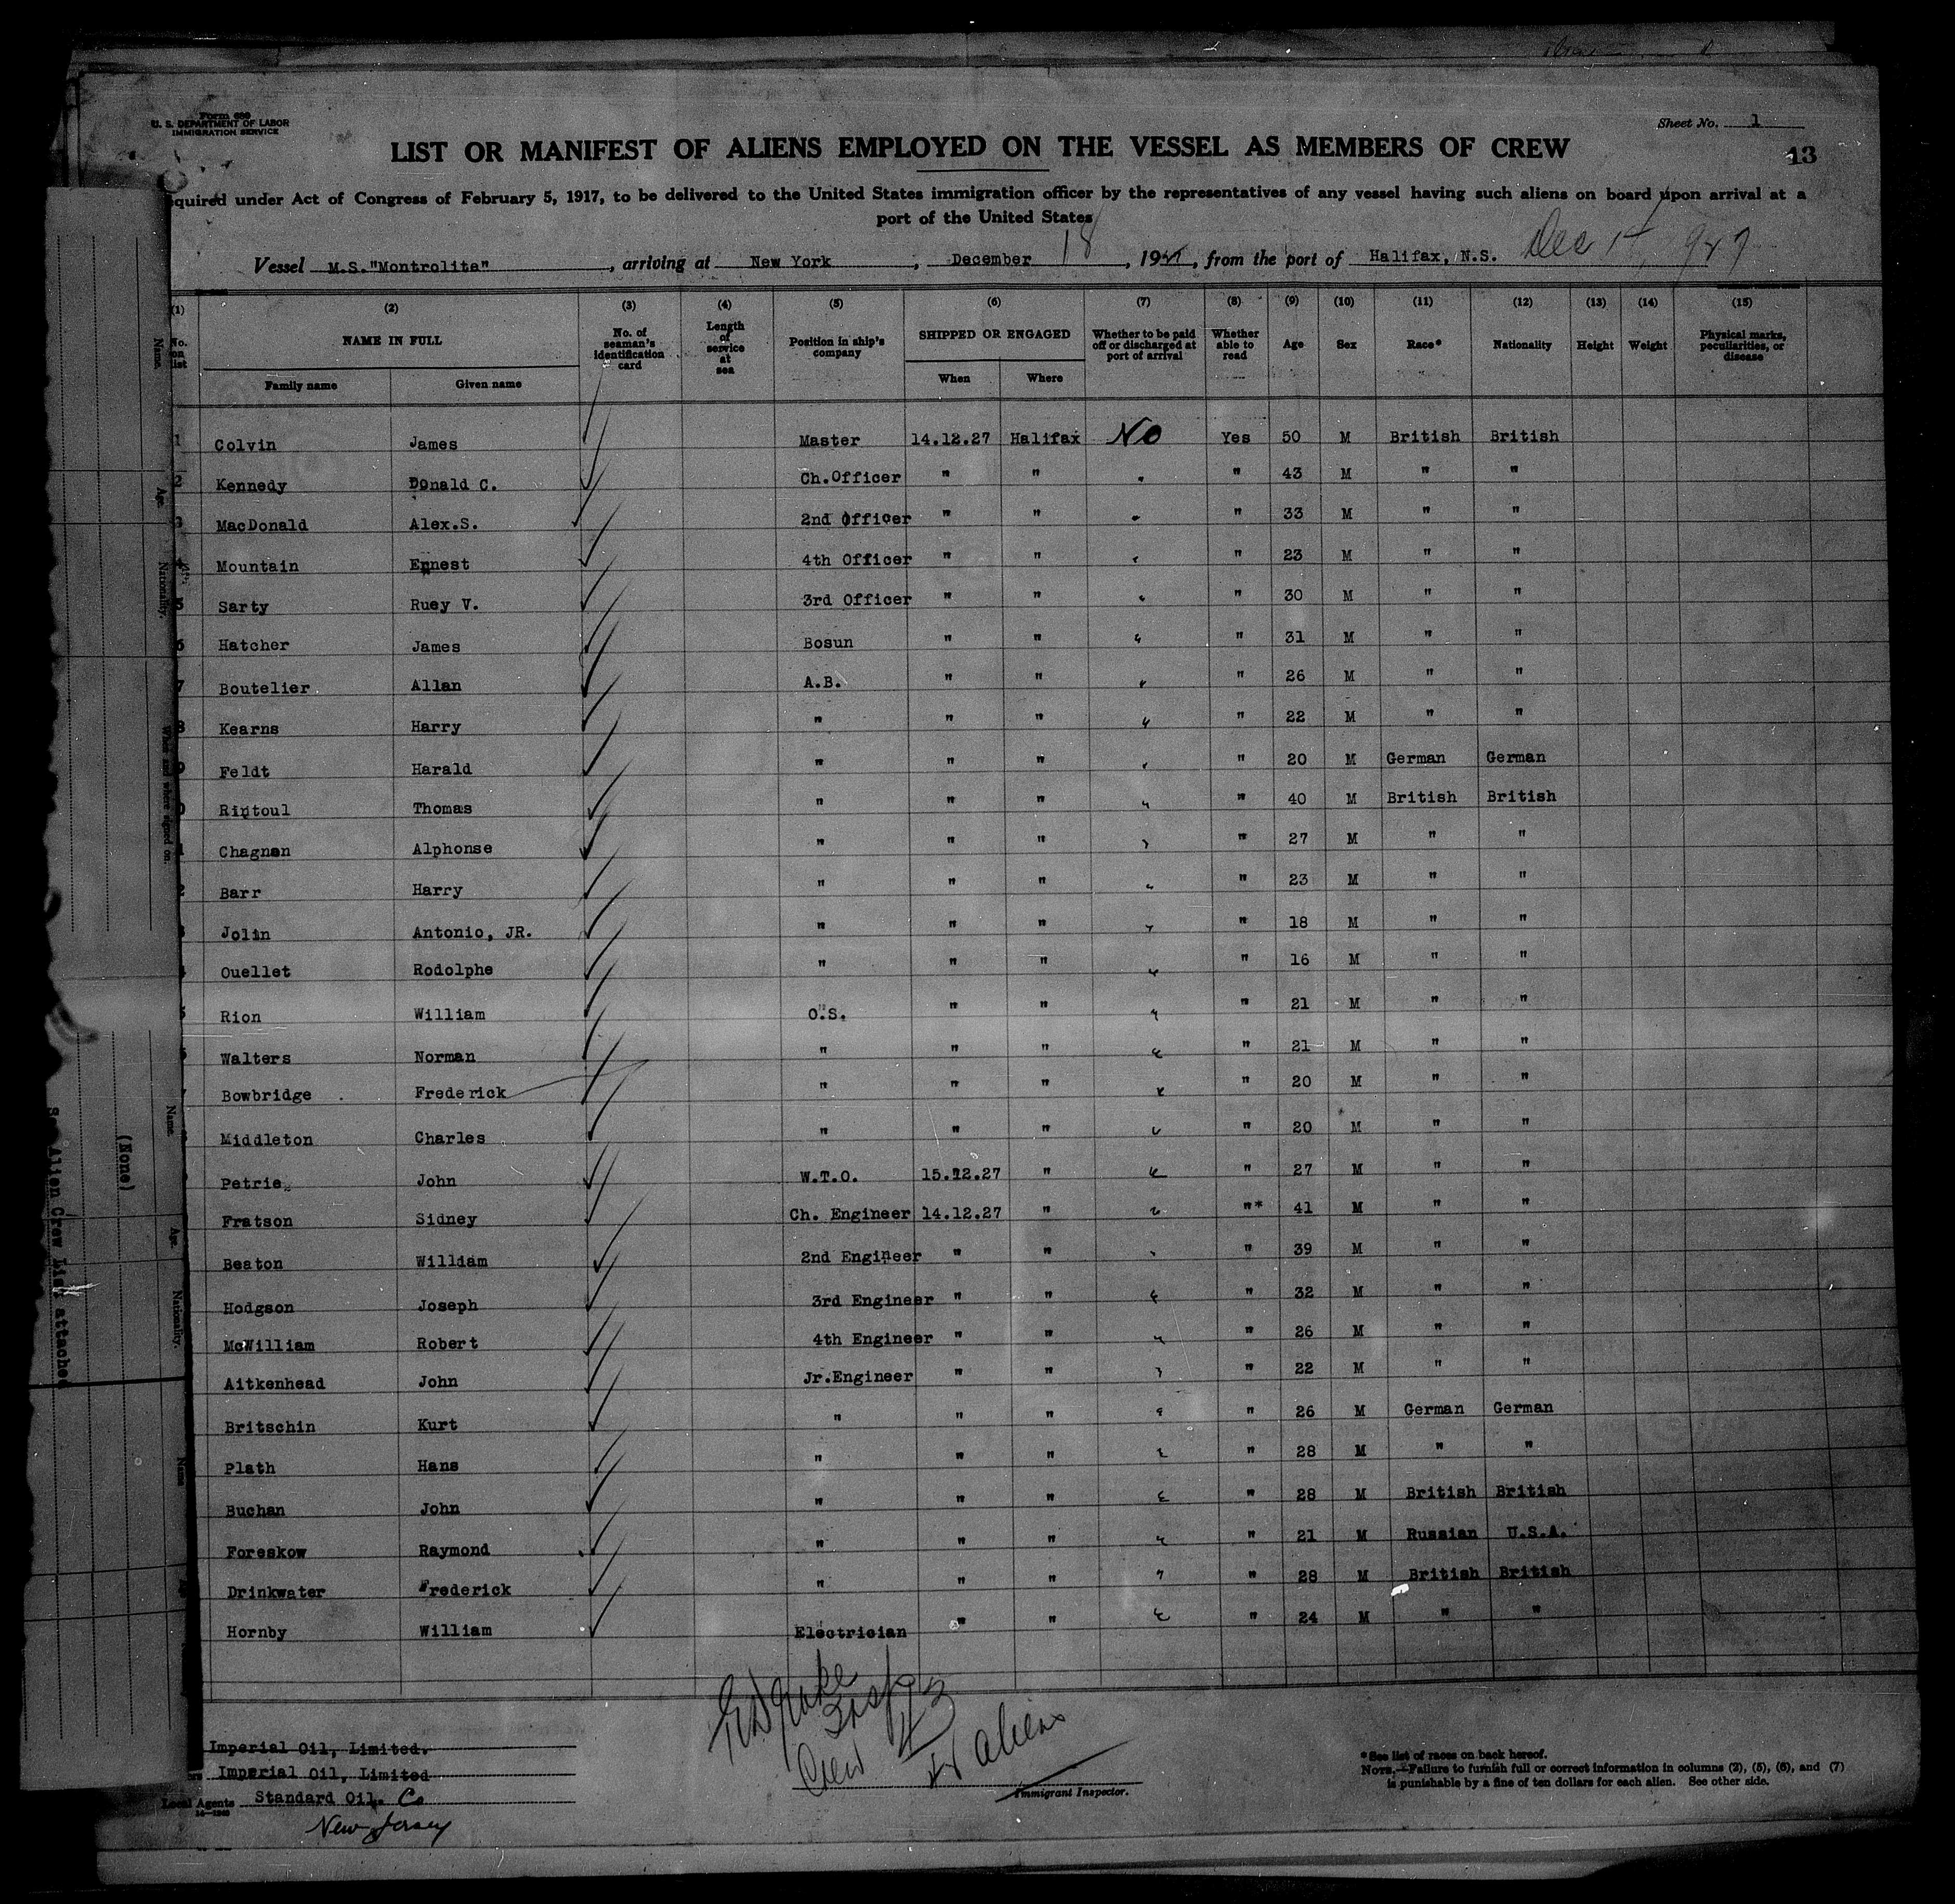 Form 689
U. S. DEPARTMENT OF LABOR
IMMIGRATION SERVICE
Sheet No. 1
13
LIST OR MANIFEST OF ALIENS EMPLOYED ON THE VESSEL AS MEMBERS OF CREW
quired under Act of Congress of February 5, 1917, to be delivered to the United States immigration officer by the representatives of any vessel having such aliens on board upon arrival at a
port of the United States
Vessel M.S."Montrolite", arriving at New York, December 18, 19, from the port of Halifax, N.S. Dec
(1) (2) (3) (4) (5) (6) (7) (8) (9) (10) (11) (12) (13) (14) (15)
No. on list NAME IN FULL No. of seaman's identification card Length of service at sea Position in ship's company SHIPPED OR ENGAGED Whether to be paid off or discharged at port of arrival Whether able to read Age Sex Race* Nationality Height Weight Physical marks, peculiarities, or disease
Family name Given name When Where
1 Colvin James Master 14.12.27 Halifax No Yes 50 M British British
2 Kennedy Donald C. Ch.Officer " " " " 43 M " "
3 MacDonald Alex.S. 2nd Officer " " " " 33 M " "
4 Mountain Ernest 4th Officer " " " " 23 M " "
5 Sarty Ruey V. 3rd Officer " " " " 30 M " "
6 Hatcher James Bosun " " " " 31 M " "
7 Boutelier Allan A.B. " " " " 26 M " "
8 Kearns Harry " " " " " 22 M " "
9 Feldt Harald " " " " " 20 M German German
0 Rintoul Thomas " " " " " 40 M British British
1 Chagnon Alphonse " " " " " 27 M " "
2 Barr Harry " " " " " 23 M " "
3 Jolin Antonio, JR. " " " " " 18 M " "
4 Ouellet Rodolphe " " " " " 16 M " "
5 Rion William O.S. " " " " 21 M " "
Walters Norman " " " " " 21 M " "
Bowbridge Frederick " " " " " 20 M " "
Middleton Charles " " " " " 20 M " "
Petrie John W.T.O. 15.12.27 " " " 27 M " "
Fratson Sidney Ch. Engineer 14.12.27 " " "* 41 M " "
Beaton William 2nd Engineer " " " " 39 M " "
Hodgson Joseph 3rd Engineer " " " " 32 M " "
McWilliam Robert 4th Engineer " " " " 26 M " "
Aitkenhead John Jr.Engineer " " " " 22 M " "
Britschin Kurt " " " " " 26 M German German
Plath Hans " " " " " 28 M " "
Buchan John " " " " " 28 M British British
Foreskow Raymond " " " " " 21 M Russian U.S.A.
Drinkwater Frederick " " " " " 28 M British British
Hornby William Electrician " " " " 24 M " "
Imperial Oil, Limited.
Imperial Oil, Limited
Local Agents Standard Oil. Co
New Jersey
14—1240
Crew 43
aliens
Immigrant Inspector.
* See list of races on back hereof.
NOTE.—Failure to furnish full or correct information in columns (2), (5), (6), and (7)
is punishable by a fine of ten dollars for each alien. See other side.
Name.
Age.
Nationality.
When and where signed on.
Name.
Age.
Nationality.
Name
(None)
Alien Crew List attached